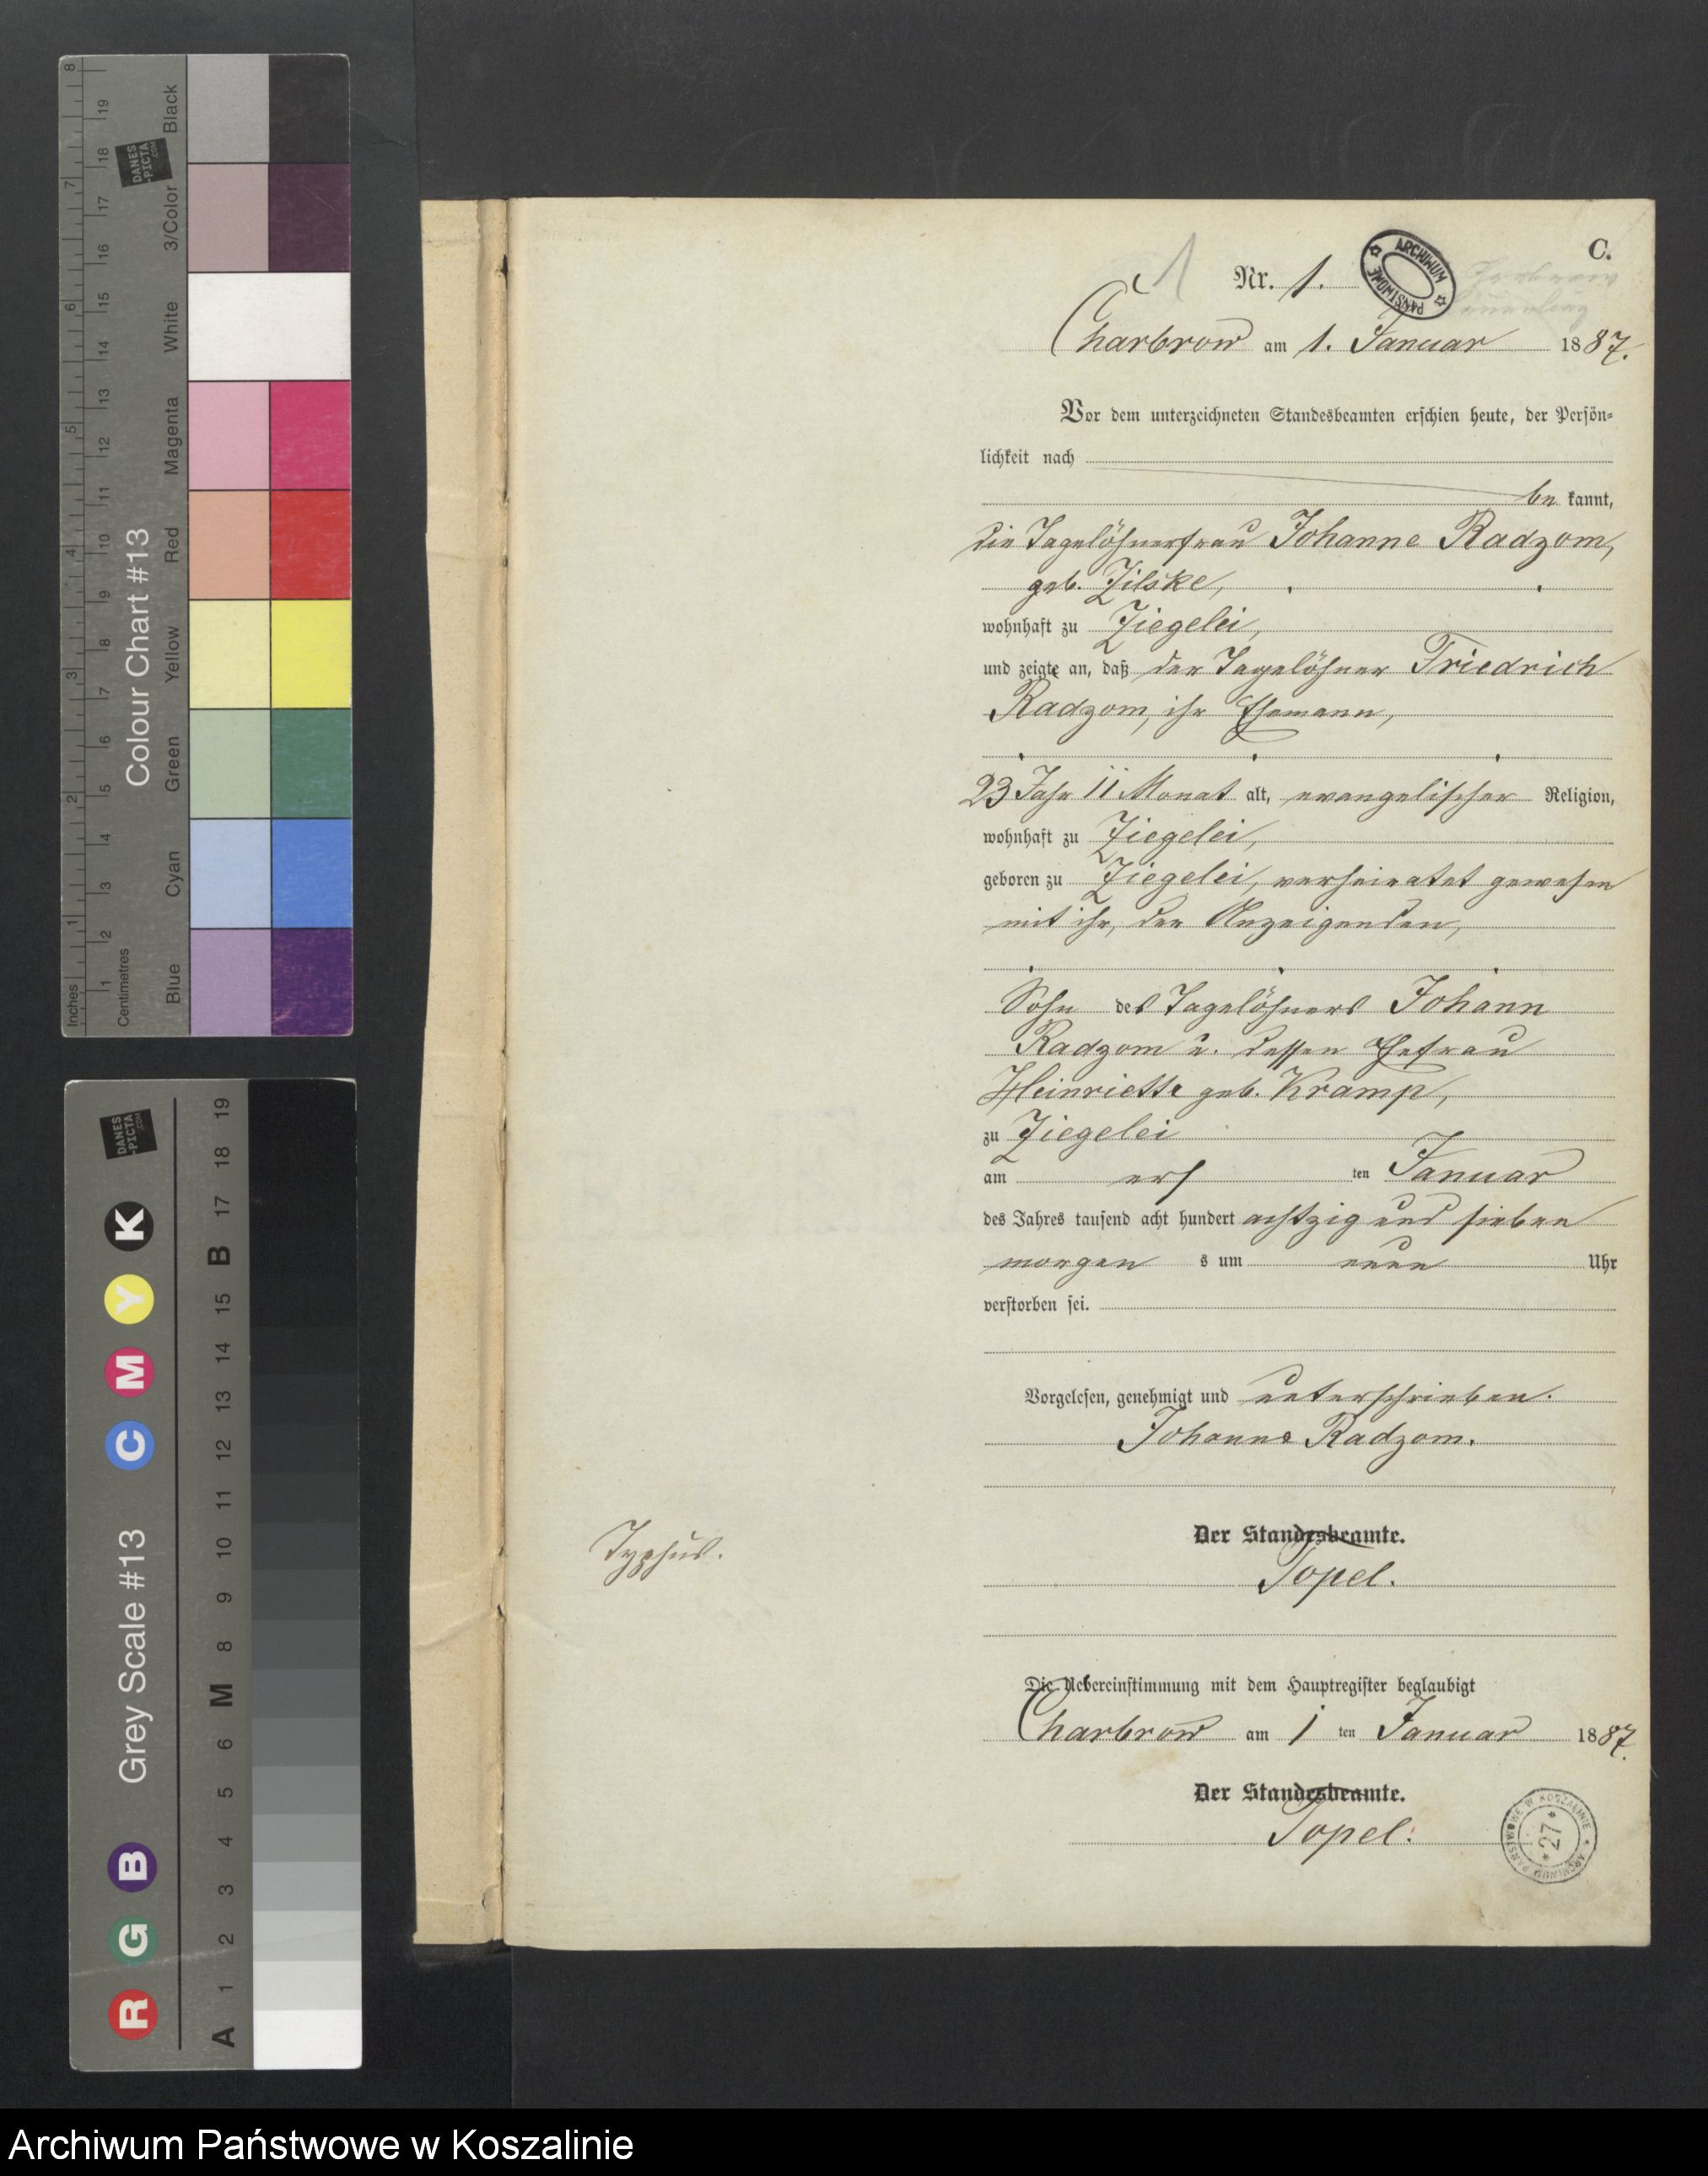 8
19
Black
DANES
-PICTA
.COM
18
7
17
3/Color
16
6
15
White
14
13
5
12
Magenta
11
4
10
Red
9
Colour Chart #13
8
Yellow
3
7
6
Green
2
5
4
Cyan
3
1
2
1
Blue
Inches
Centimetres
DANES
-PICTA
.COM
19
18
17
B
16
15
14
13
12
11
10
9
8
M
7
6
5
4
3
2
1
A
K
Y
M
C
Grey Scale #13
B
G
R
1
C.
Nr. 1.
ARCHIWUM PAŃSTWOWE
Charbrow am 1. Januar 1887.
Vor dem unterzeichneten Standesbeamten erschien heute, der Persön-
lichkeit nach
be kannt,
die Tagelöhnerfrau Johanne Radzom,
geb. Zilske,
wohnhaft zu Ziegelei,
und zeigte an, daß der Tagelöhner Friedrich
Radzom, ihr Ehemann,
23 Jahr 11 Monat alt, evangelischer Religion,
wohnhaft zu Ziegelei,
geboren zu Ziegelei, verheiratet gewesen
mit ihr, der Anzeigenden,
Sohn des Tagelöhners Johann
Radzom u. dessen Ehefrau
Heinriette geb. Kramp,
zu Ziegelei
am ers ten Januar
des Jahres tausend acht hundert achtzig und sieben
morgen s um neun Uhr
verstorben sei.
Vorgelesen, genehmigt und unterschrieben.
Johanne Radzom.
Der Standesbeamte.
Topel.
Typhus.
Die Uebereinstimmung mit dem Hauptregister beglaubigt
Charbrow am 1 ten Januar 1887.
Der Standesbeamte.
Topel.
ARCHIWUM PAŃSTWOWE W KOSZALINIE
* 27 *
Archiwum Państwowe w Koszalinie